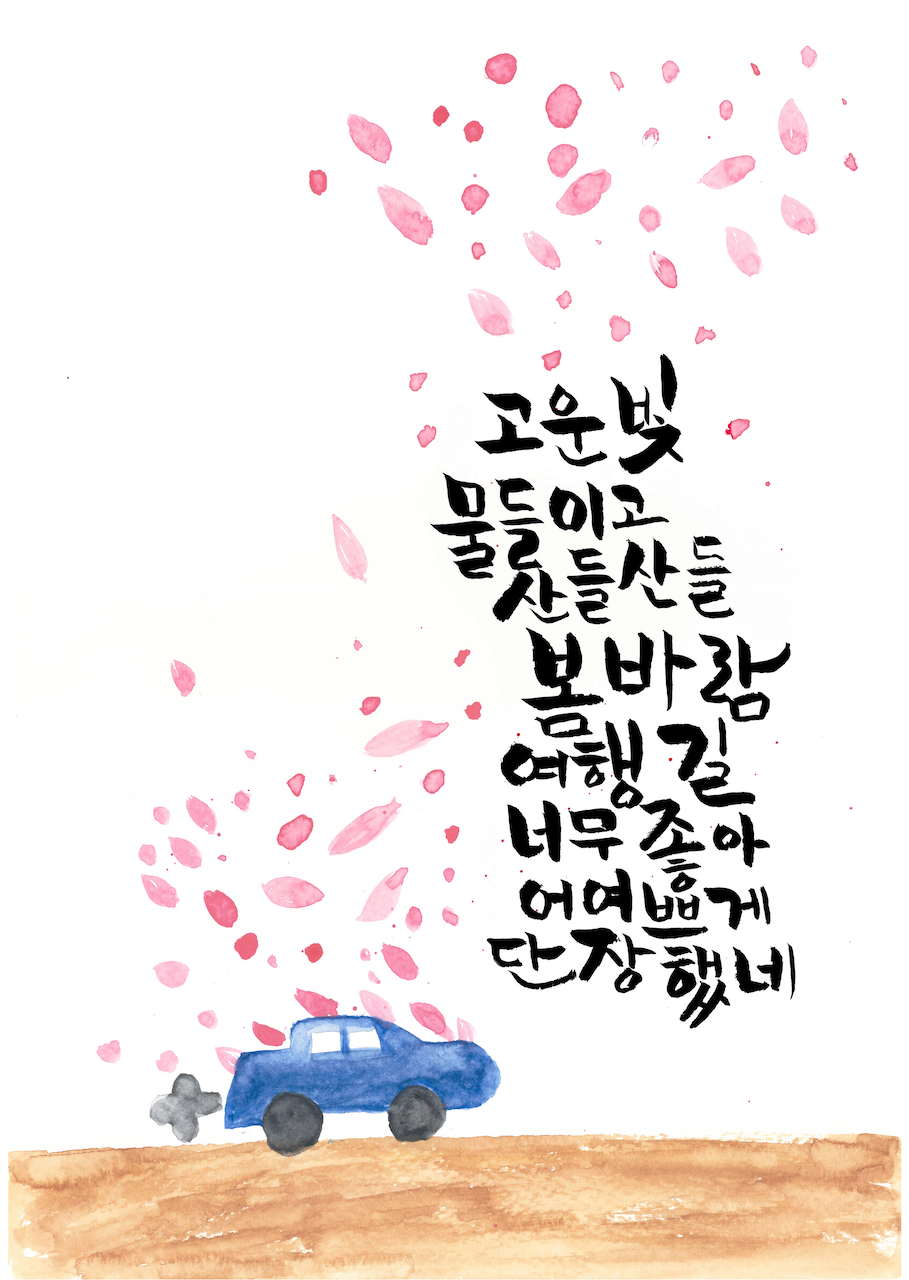 고운 빛
물들이고
산들산들
봄바람
여행길
너무 좋아
어여쁘게
단장했네